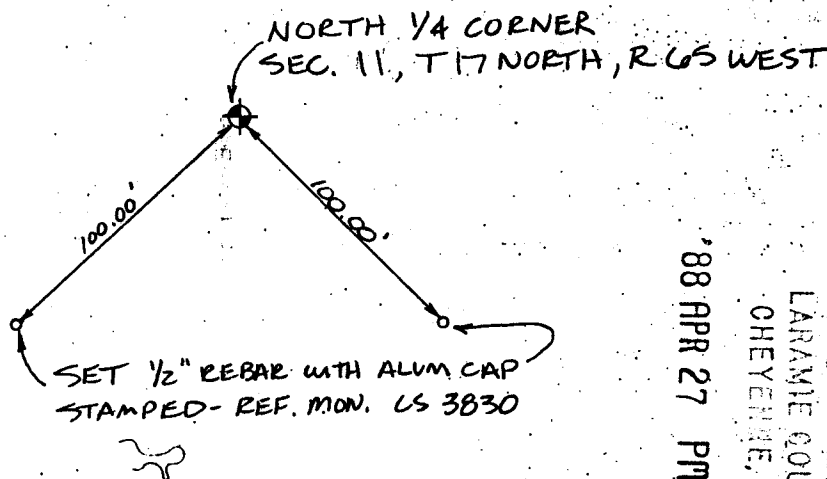 NORTH 1/4 CORNER
SEC. 11, T17 NORTH, R 65 WEST
100.00'
100.00'
SET 1/2" REBAR WITH ALUM CAP
STAMPED- REF. MON. LS 3830
LARAMIE
CHEYENNE,
'88 APR 27 PM